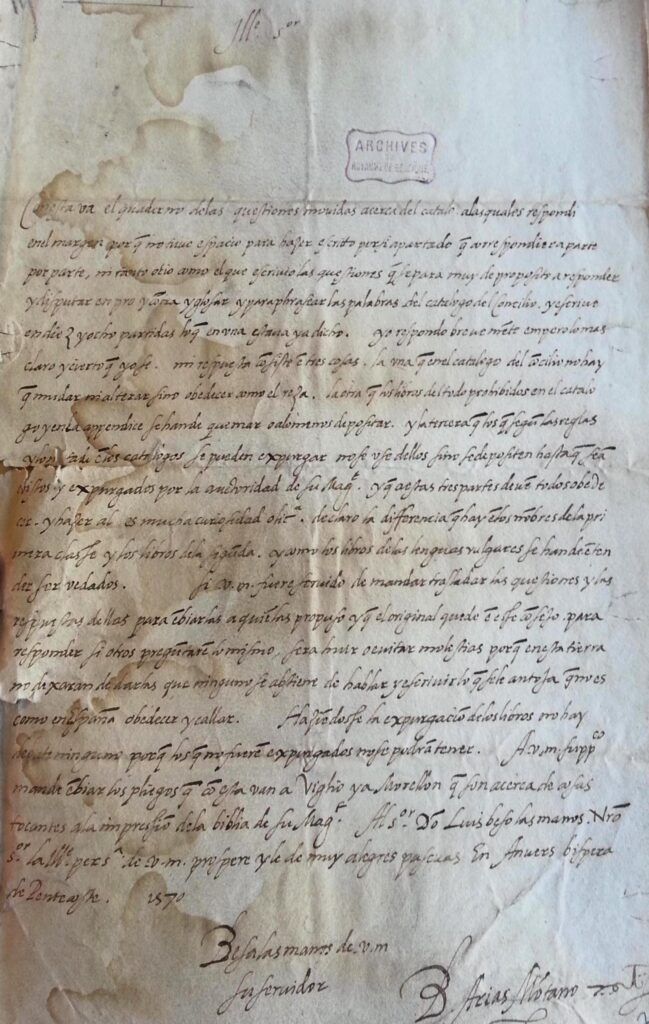 Ill.e s.or
ARCHIVES
ROYAUME DE BELGIQUE
Con esta va el quaderno de las questiones movidas acerca del catalo. a las quales respondi
en el margen porq̃ no tuve espacio para hazer escrito per si apartado q̃ correspondiera parte
por parte, ni tanto otio como el que escrivio las questiones q̃ se para muy de proposito a responder
y disputar en pro y cõtra y glosar y paraphrasear las palabras del catalogo del Concilio. y escrive
en diez y ocho partidas lo q̃ en una estava ya dicho. yo respondo brevemẽte empero lo mas
claro y cierto q̃ yo se. mi respuesta cõsiste ẽ tres cosas. la una q̃ en el catalogo del cõcilio no hay
q̃ mudar ni alterar sino obedecer como el reza. la otra q̃ los libros del todo prohibidos en el catalo
go y en la appendice se han de quemar o a lo menos depositar. y la tercera q̃ los q̃ segun las reglas
ẽ los catalogos se pueden expurgar no se use dellos sino se depositen hasta q̃ seã
vistos y expurgados por la auctoridad de su Mag.t y q̃ a estas tres partes devẽ todos obede
cer. y hazer al es mucha curiosidad declaro la differencia q̃ hay ẽ los nõbres de la pri
mera classe y los libros de la segũda. y como los libros de las lenguas vulgares se han de ẽten
der ser vedados. si v.m. fuere servido de mandar trasladar las questiones y las
respuestas dellas para ẽbiarlas a quiẽ las propuso y q̃ el original quede ẽ esse cõsejo. para
responder si otros pregũtarẽ lo mismo, sera evitar molestias porq̃ en esta tierra
no dexaran de darlas que ninguno se abtiene de hablar y escrivir lo q̃ se le antoja q̃ no es
como en españa obedecer y callar. Haziẽdose la expurgaciõ de los libros no hay
ninguno porq̃ los q̃ no fuerẽ expurgados no se podrã tener. A v.m. supp.co
mande ẽbiar los pliegos q̃ cõ esta van a Viglio y a Morillon q̃ son acerca de cosas
tocantes a la impressiõ de la biblia de su Mag.t Al s.or Dõ Luis beso las manos. Nrõ
s.or la Ill.e pers.a de v.m. prospere y le de muy alegres pascuas En Anvers bispera
de Pentecoste. 1570
Besa las manos de v.m
su servidor
B Arias Mõtano